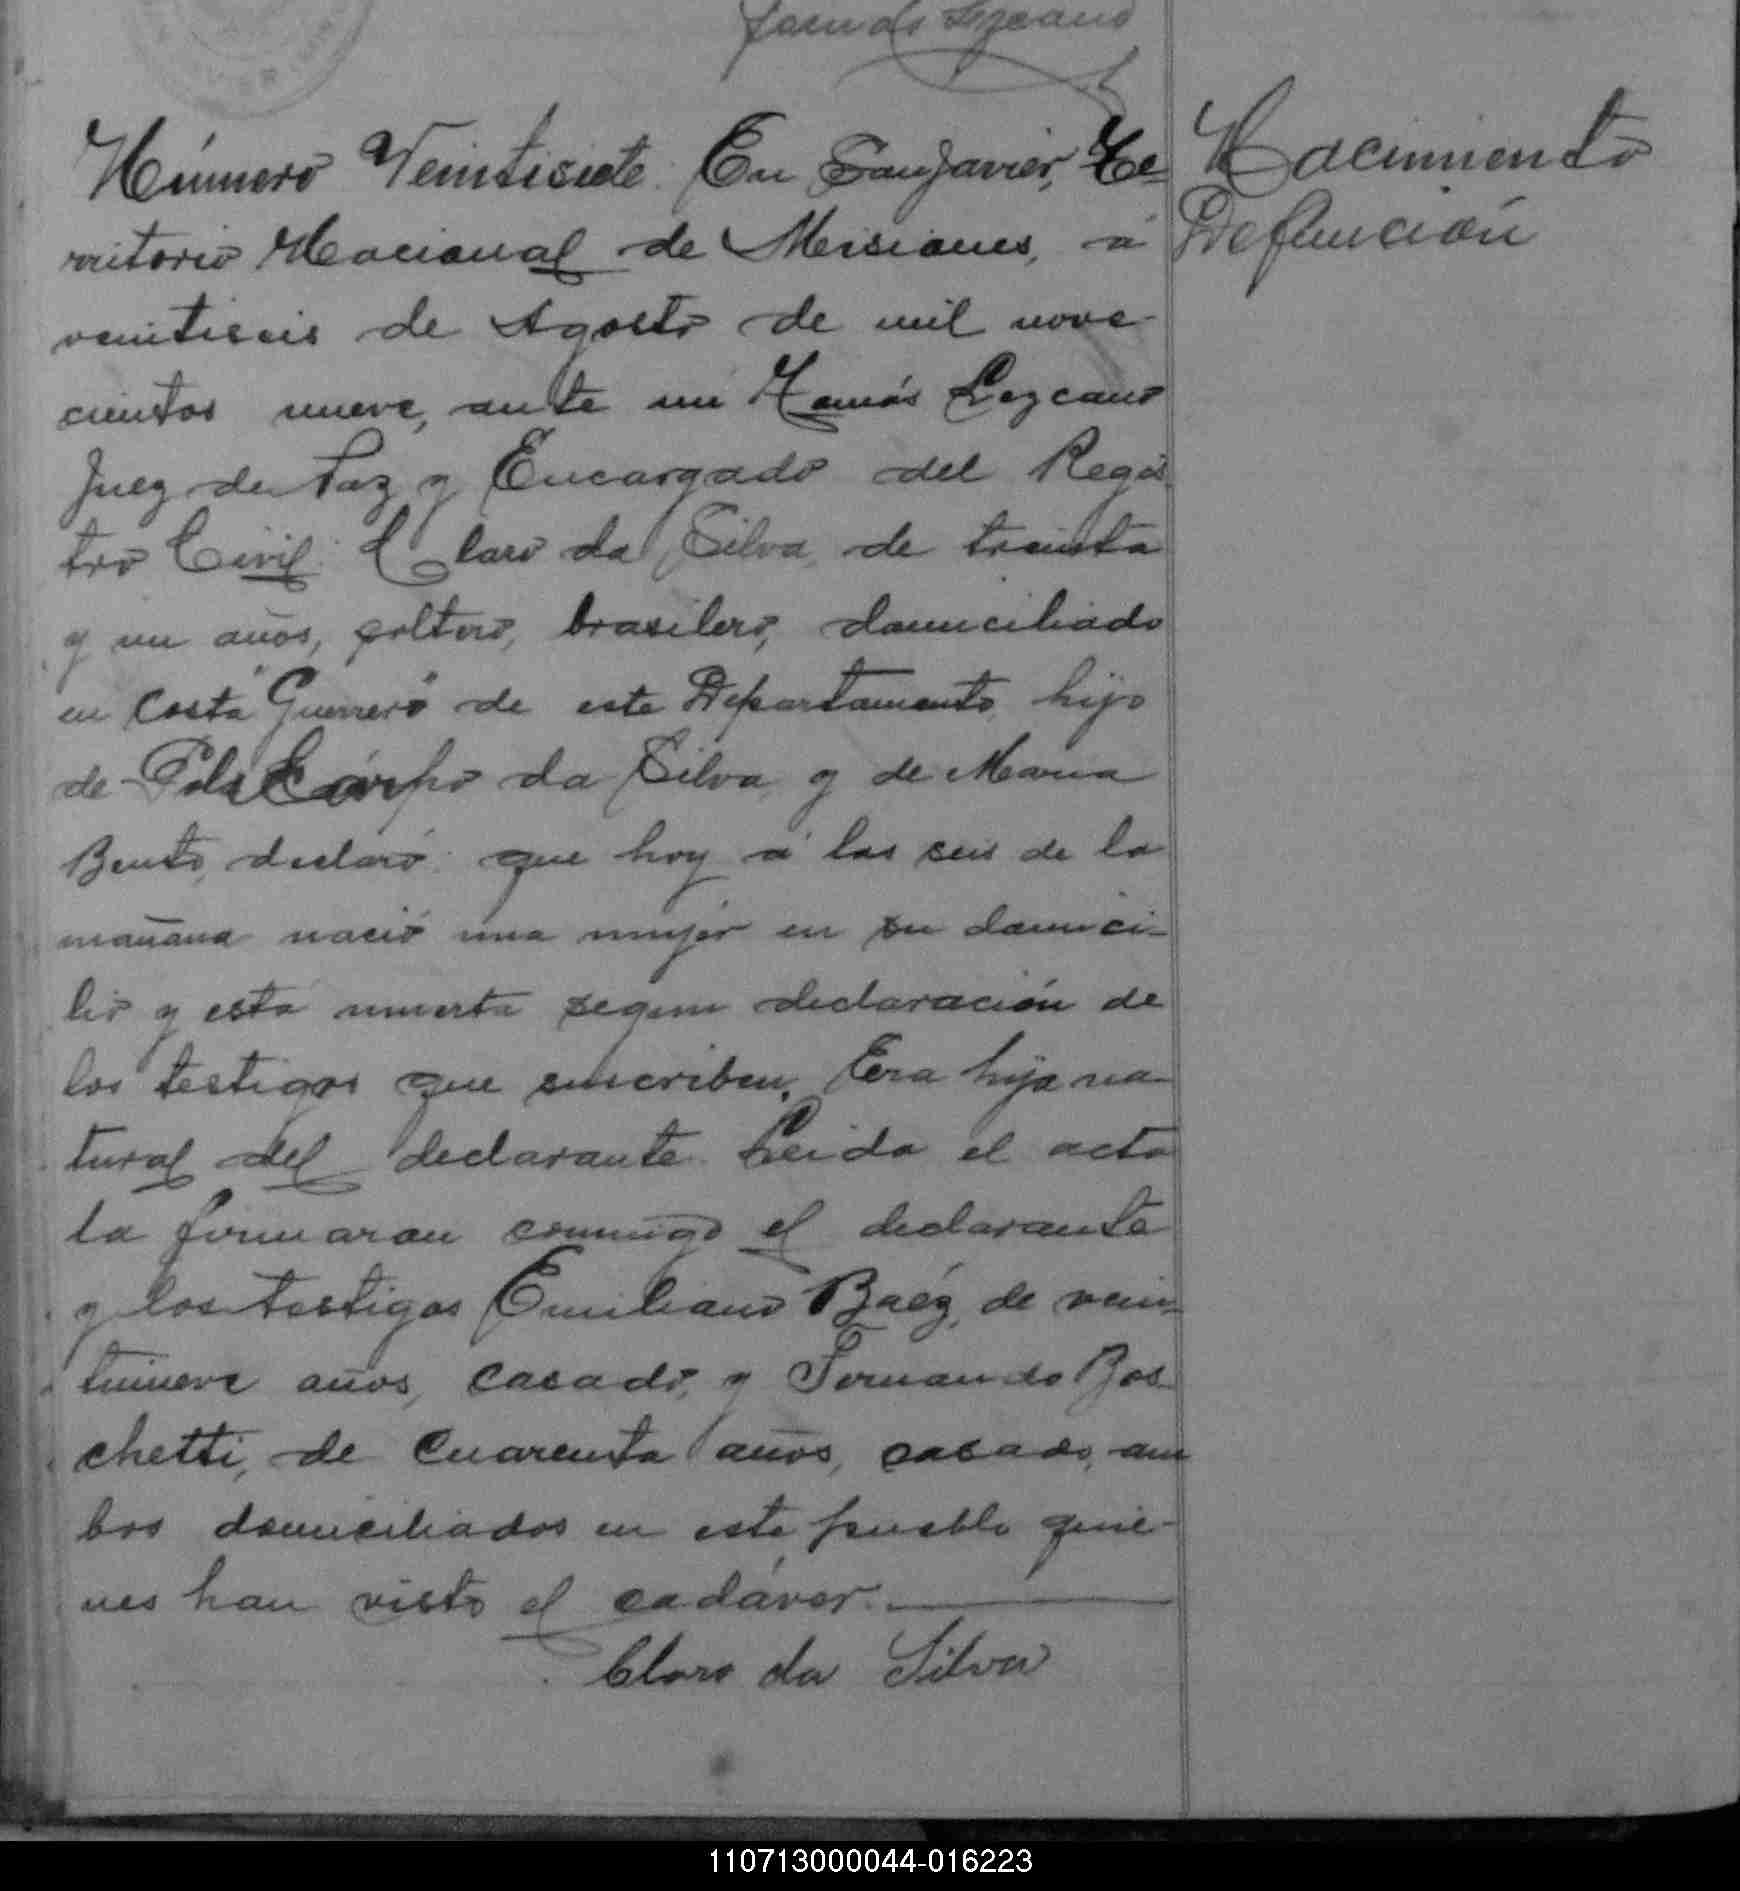 Lezcano
Nacimiento
Defunción
Número Veintisiete. En San Javier, Te-
rritorio Nacional de Misiones, á
veintiseis de Agosto de mil nove-
cientos nueve, ante mi Tomás Lezcano
Juez de Paz y Encargado del Regis
tro Civil. Claro da Silva, de treinta
y un años, soltero, brasilero, domiciliado
en Costa "Guerrero" de este Departamento, hijo
de Policarpo da Silva, y de Maria
Bento, declaró: que hoy á las seis de la
mañana nació una mujer en su domici-
lio y está muerta segun declaración de
los testigos que suscriben. Era hija na-
tural del declarante. Leida el acta
la firmaron conmigo el declarante
y los testigos Emiliano Baéz, de vein-
tinueve años, casado, y Fernando Bos-
chetti, de cuarenta años, casado, am
bos domiciliados en este pueblo quie-
nes han visto el cadáver.
Claro da Silva
110713000044-016223